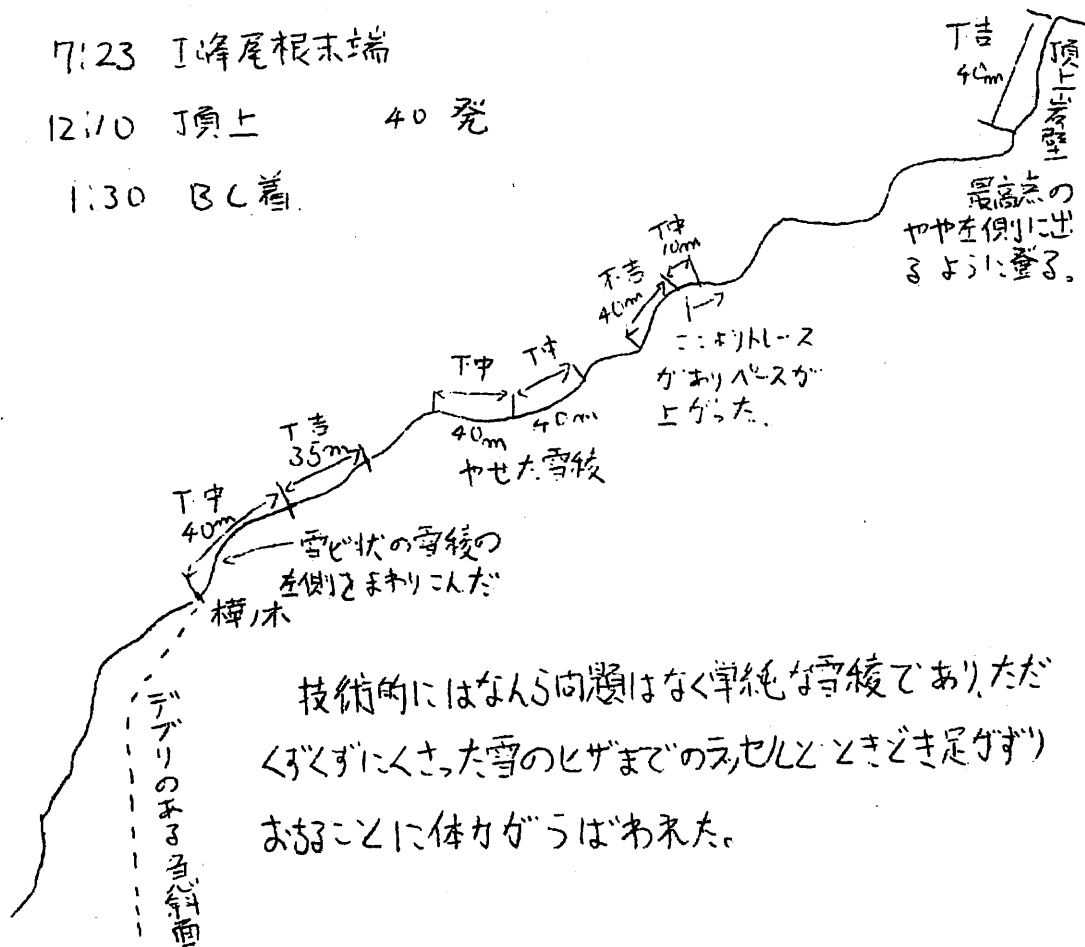 7:23 I峰尾根末端
12:10 頂上 40発
1:30 BC着
T.吉
40m
頂上岩壁
最高点の
やや左側に出
るように登る。
T.中
10m
T.吉
40m
ここよりトレース
がありペースが
上がった。
T.中
T.中
40m
40m
やせた雪稜
T.吉
35m
T.中
40m
雪ピ状の雪稜の
左側をまわりこんだ
樺ノ木
デブリのある急斜面
技術的にはなんら問題はなく単純な雪稜であり、ただ
くずくずにくさった雪のヒザまでのラッセルとときどき足がずり
おちることに体力がうばわれた。